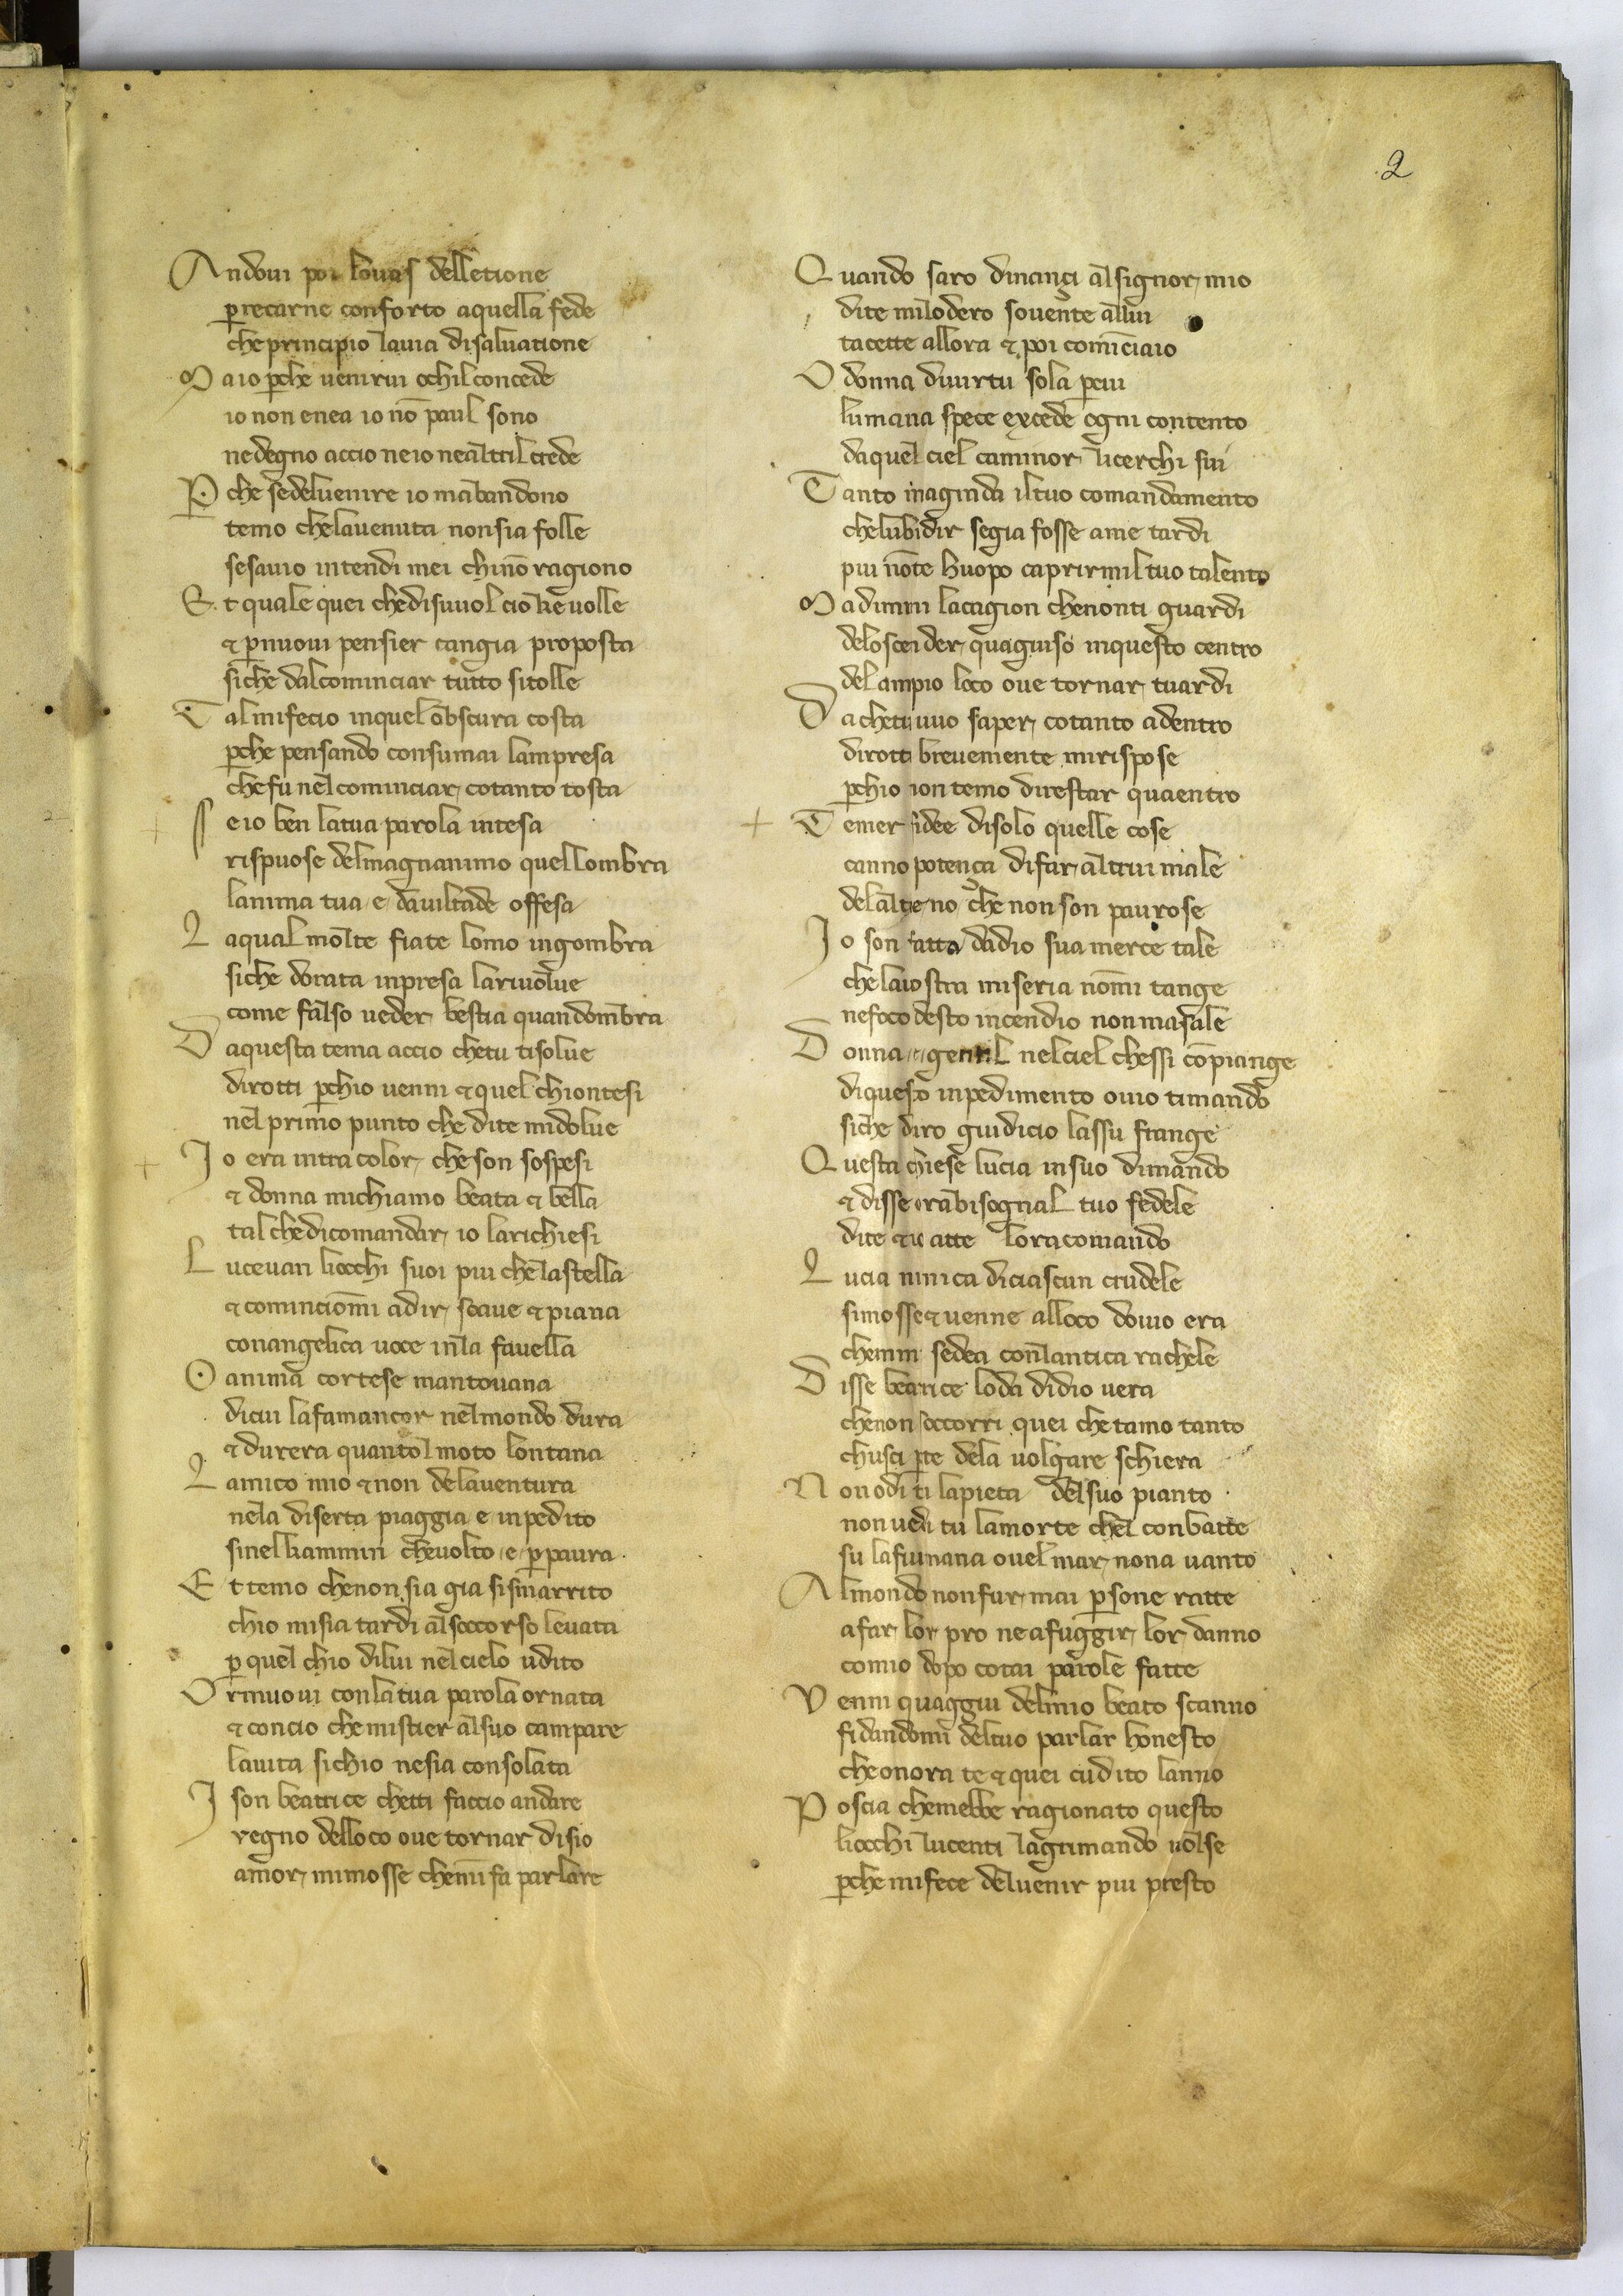 2
Andovvi poi lo vas delletione
per recarne conforto aquella fede
che principio lavia disalvatione
Maio perche venirvi ochil concede
io non enea io nō paul sono
ne degno accio neio nealtril crede
P che sedelvenire io mabandono
temo chelavenuta nonsia folle
sesavio intendi mei chinō ragiono
Et quale quei chedisvuol cio ke volle
& p nuovi pensier cangia proposta
siche dalcominciar tutto sitolle
Tal mifecio inquel obscura costa
pche pensando consumai lampresa
chefu nelcominciar cotanto tosta
Seio ben latua parola intesa
rispuose delmagnanimo quellombra
lanima tua e daviltade offesa
Laqual molte fiate lomo ingombra
siche dorata inpresa larivolve
come falso veder bestia quandombra
Daquesta tema accio chetu tisolve
dirotti pchio venni & quel chiontesi
nel primo punto che dite midolve
Io era intra color che son sospesi
& donna michiamo beata & bella
tal chedicomandar io larichiesi
Lucevan liocchi suoi piu che lastella
& cominciommi adir soave & piana
conangelica voce inla favella
O anima cortese mantovana
dicui lafamancor nelmondo dura
& durera quantol moto lontana
Lamico mio & non delaventura
nela diserta piaggia e inpedito
sinel kammin chevolto e p paura
Et temo chenon sia gia sismarrito
chio misia tardi alsoccorso levata
p quel chio dilui nelcielo udito
Or muovi conlatua parola ornata
& concio che mistier alsuo campare
lavita sichio nesia consolata
I son beatrice chetti faccio andare
vegno delloco ove tornar disio
amor mimosse chemi fa parlare
Quando saro dinançi alsignor mio
dite milodero sovente allui
tacette allora & poi cominciaio
O donna divirtu sola pcui
lumana spece excede ogni contento
daquel ciel caminor licerchi sui
Tanto magrada iltuo comandamento
chelubidir segia fosse ame tardi
piu nōte huopo caprirmil tuo talento
Madimmi lacagion chenonti guardi
deloscender quaguiso inquesto centro
delampio loco ove tornar tuardi
Da chetu vuo saper cotanto adentro
dirotti brevemente mirispose
pchio non temo direstar quaentro
Temer sidee disolo quelle cose
canno potença difar altrui male
delaltre no che nonson paurose
Io son fatta dadio sua merce tale
chelavostra miseria nōmi tange
nefoco desto incendio nonmasale
Donna e gentil nelciel chessi cōpiange
diquesto inpedimento ovio timando
siche diro giudicio lassu frange
Questa chiese lucia insuo dimando
& disse orabisognal tuo fedele
dite & io atte loracomando
Lucia nimica diciascun crudele
simosse & venne alloco dovio era
chemmi sedea conlantica rachele
Disse beatrice loda didio vera
chenon soccorri quei chetamo tanto
chusci pte dela volgare schiera
Nonodi ti lapieta delsuo pianto
non vedi tu lamorte chel conbatte
su lafiumana ovel mar nona vanto
Almondo nonfur mai psone ratte
afar lor pro neafuggir lor danno
comio dopo cotai parole fatte
Venni quaggiu delmio beato scanno
fidandomi deltuo parlar honesto
cheonora te & quei cudito lanno
Poscia chemebbe ragionato questo
liocchi lucenti lagrimando volse
pche mifece delvenir piu presto